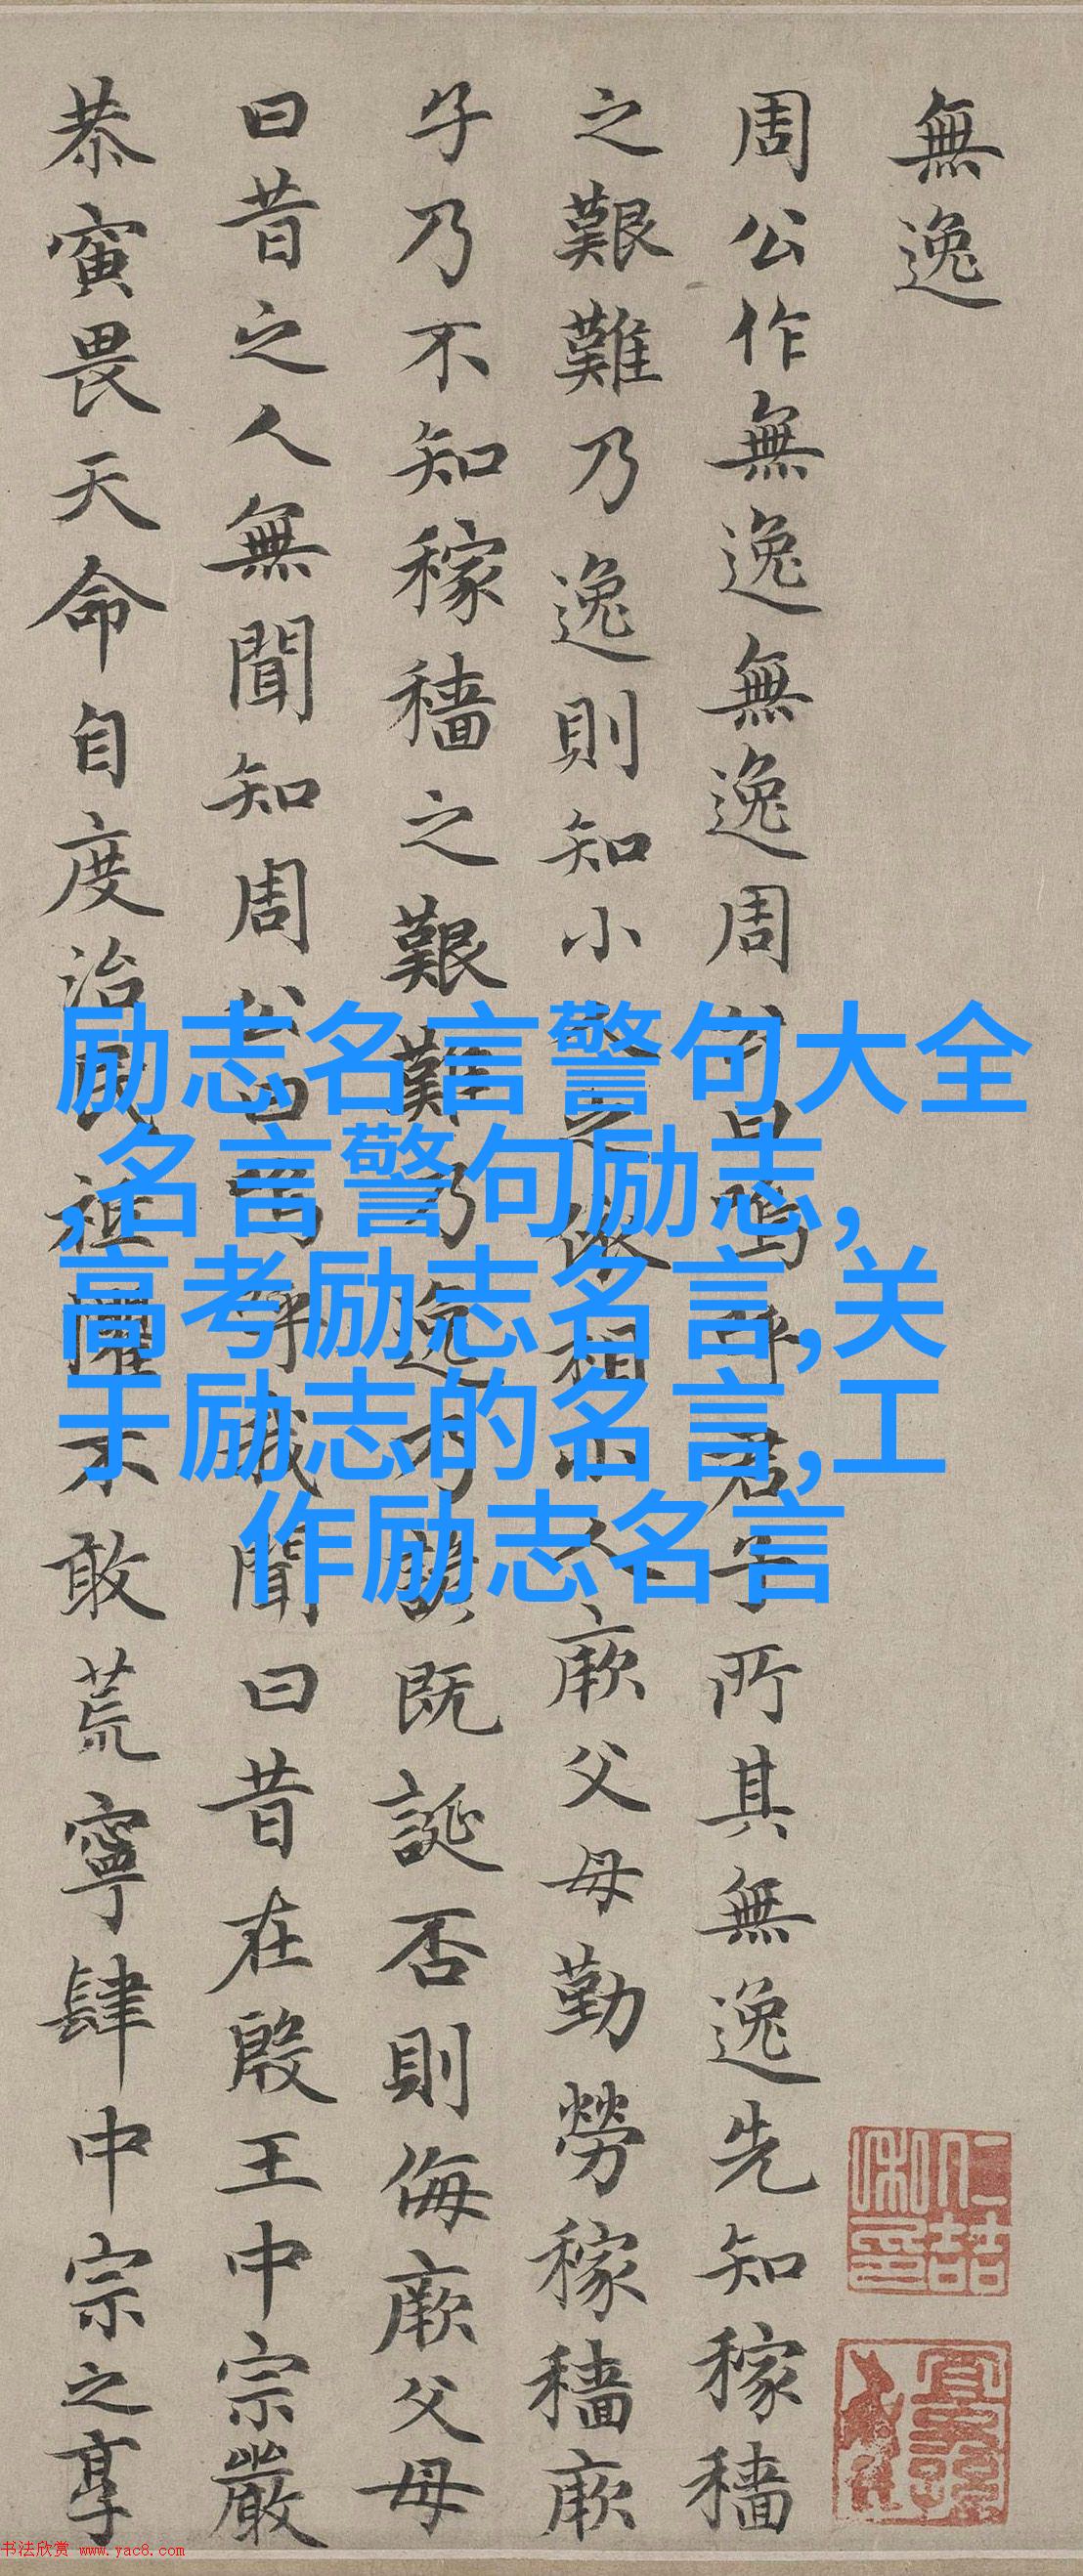 無逸
周公作無逸無逸周公曰嗚呼君子所其無逸先知稼穡
之艱難乃逸則知小人之依相小人厥父母勤勞稼穡厥
子乃不知稼穡之艱難乃逸乃諺既誕否則侮厥父母
曰昔之人無聞知周公曰嗚呼我聞曰昔在殷王中宗嚴
恭寅畏天命自度治民祗懼不敢荒寧肆中宗之享
励志名言警句大全
,名言警句励志,
高考励志名言,关
于励志的名言,工
作励志名言
书法欣赏 www.yac8.com